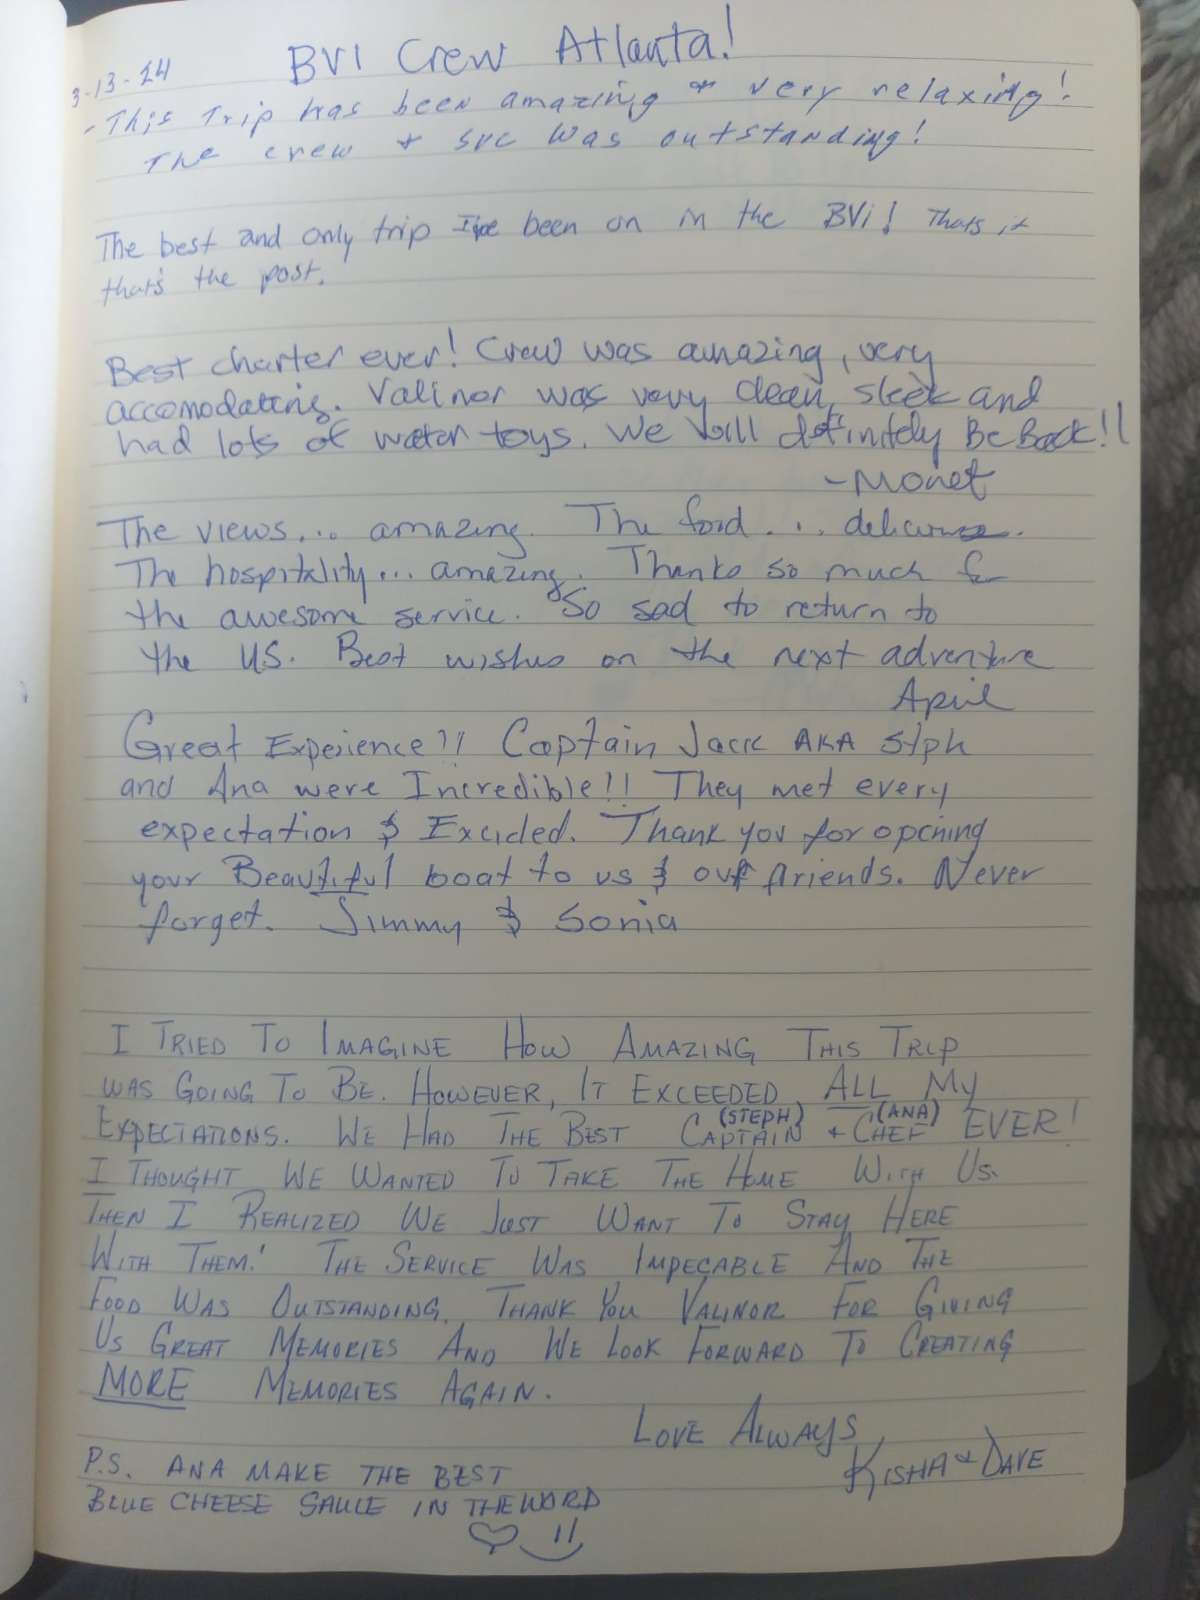 BVI Crew Atlanta!
3-13-24
- This Trip has been amazing & very relaxing!
The crew + svc was outstanding!
The best and only trip I've been on in the BVI! Thats it
that's the post.
Best charter ever! Crew was amazing, very
accomodating. Valinor was very clean, sleek and
had lots of water toys. We will definitely Be Back!!
- Monet
The views... amazing. The food... delicious.
The hospitality... amazing. Thanks so much for
the awesome service. So sad to return to
the US. Best wishes on the next adventure
April
Great Experience!! Captain Jack AKA Stph
and Ana were Incredible!! They met every
expectation & Excided. Thank you for opening
your Beautiful boat to us & our friends. Never
forget. Jimmy & Sonia
I TRIED TO IMAGINE HOW AMAZING THIS TRIP
WAS GOING TO BE. HOWEVER, IT EXCEEDED ALL MY
EXPECTATIONS. WE HAD THE BEST CAPTAIN (STEPH) + CHEF (ANA) EVER!
I THOUGHT WE WANTED TO TAKE THE HOME WITH US.
THEN I REALIZED WE JUST WANT TO STAY HERE
WITH THEM! THE SERVICE WAS IMPECABLE AND THE
FOOD WAS OUTSTANDING. THANK YOU VALINOR FOR GIVING
US GREAT MEMORIES AND WE LOOK FORWARD TO CREATING
MORE MEMORIES AGAIN.
LOVE ALWAYS
KISHA + DAVE
P.S. ANA MAKE THE BEST
BLUE CHEESE SAUCE IN THE WORD